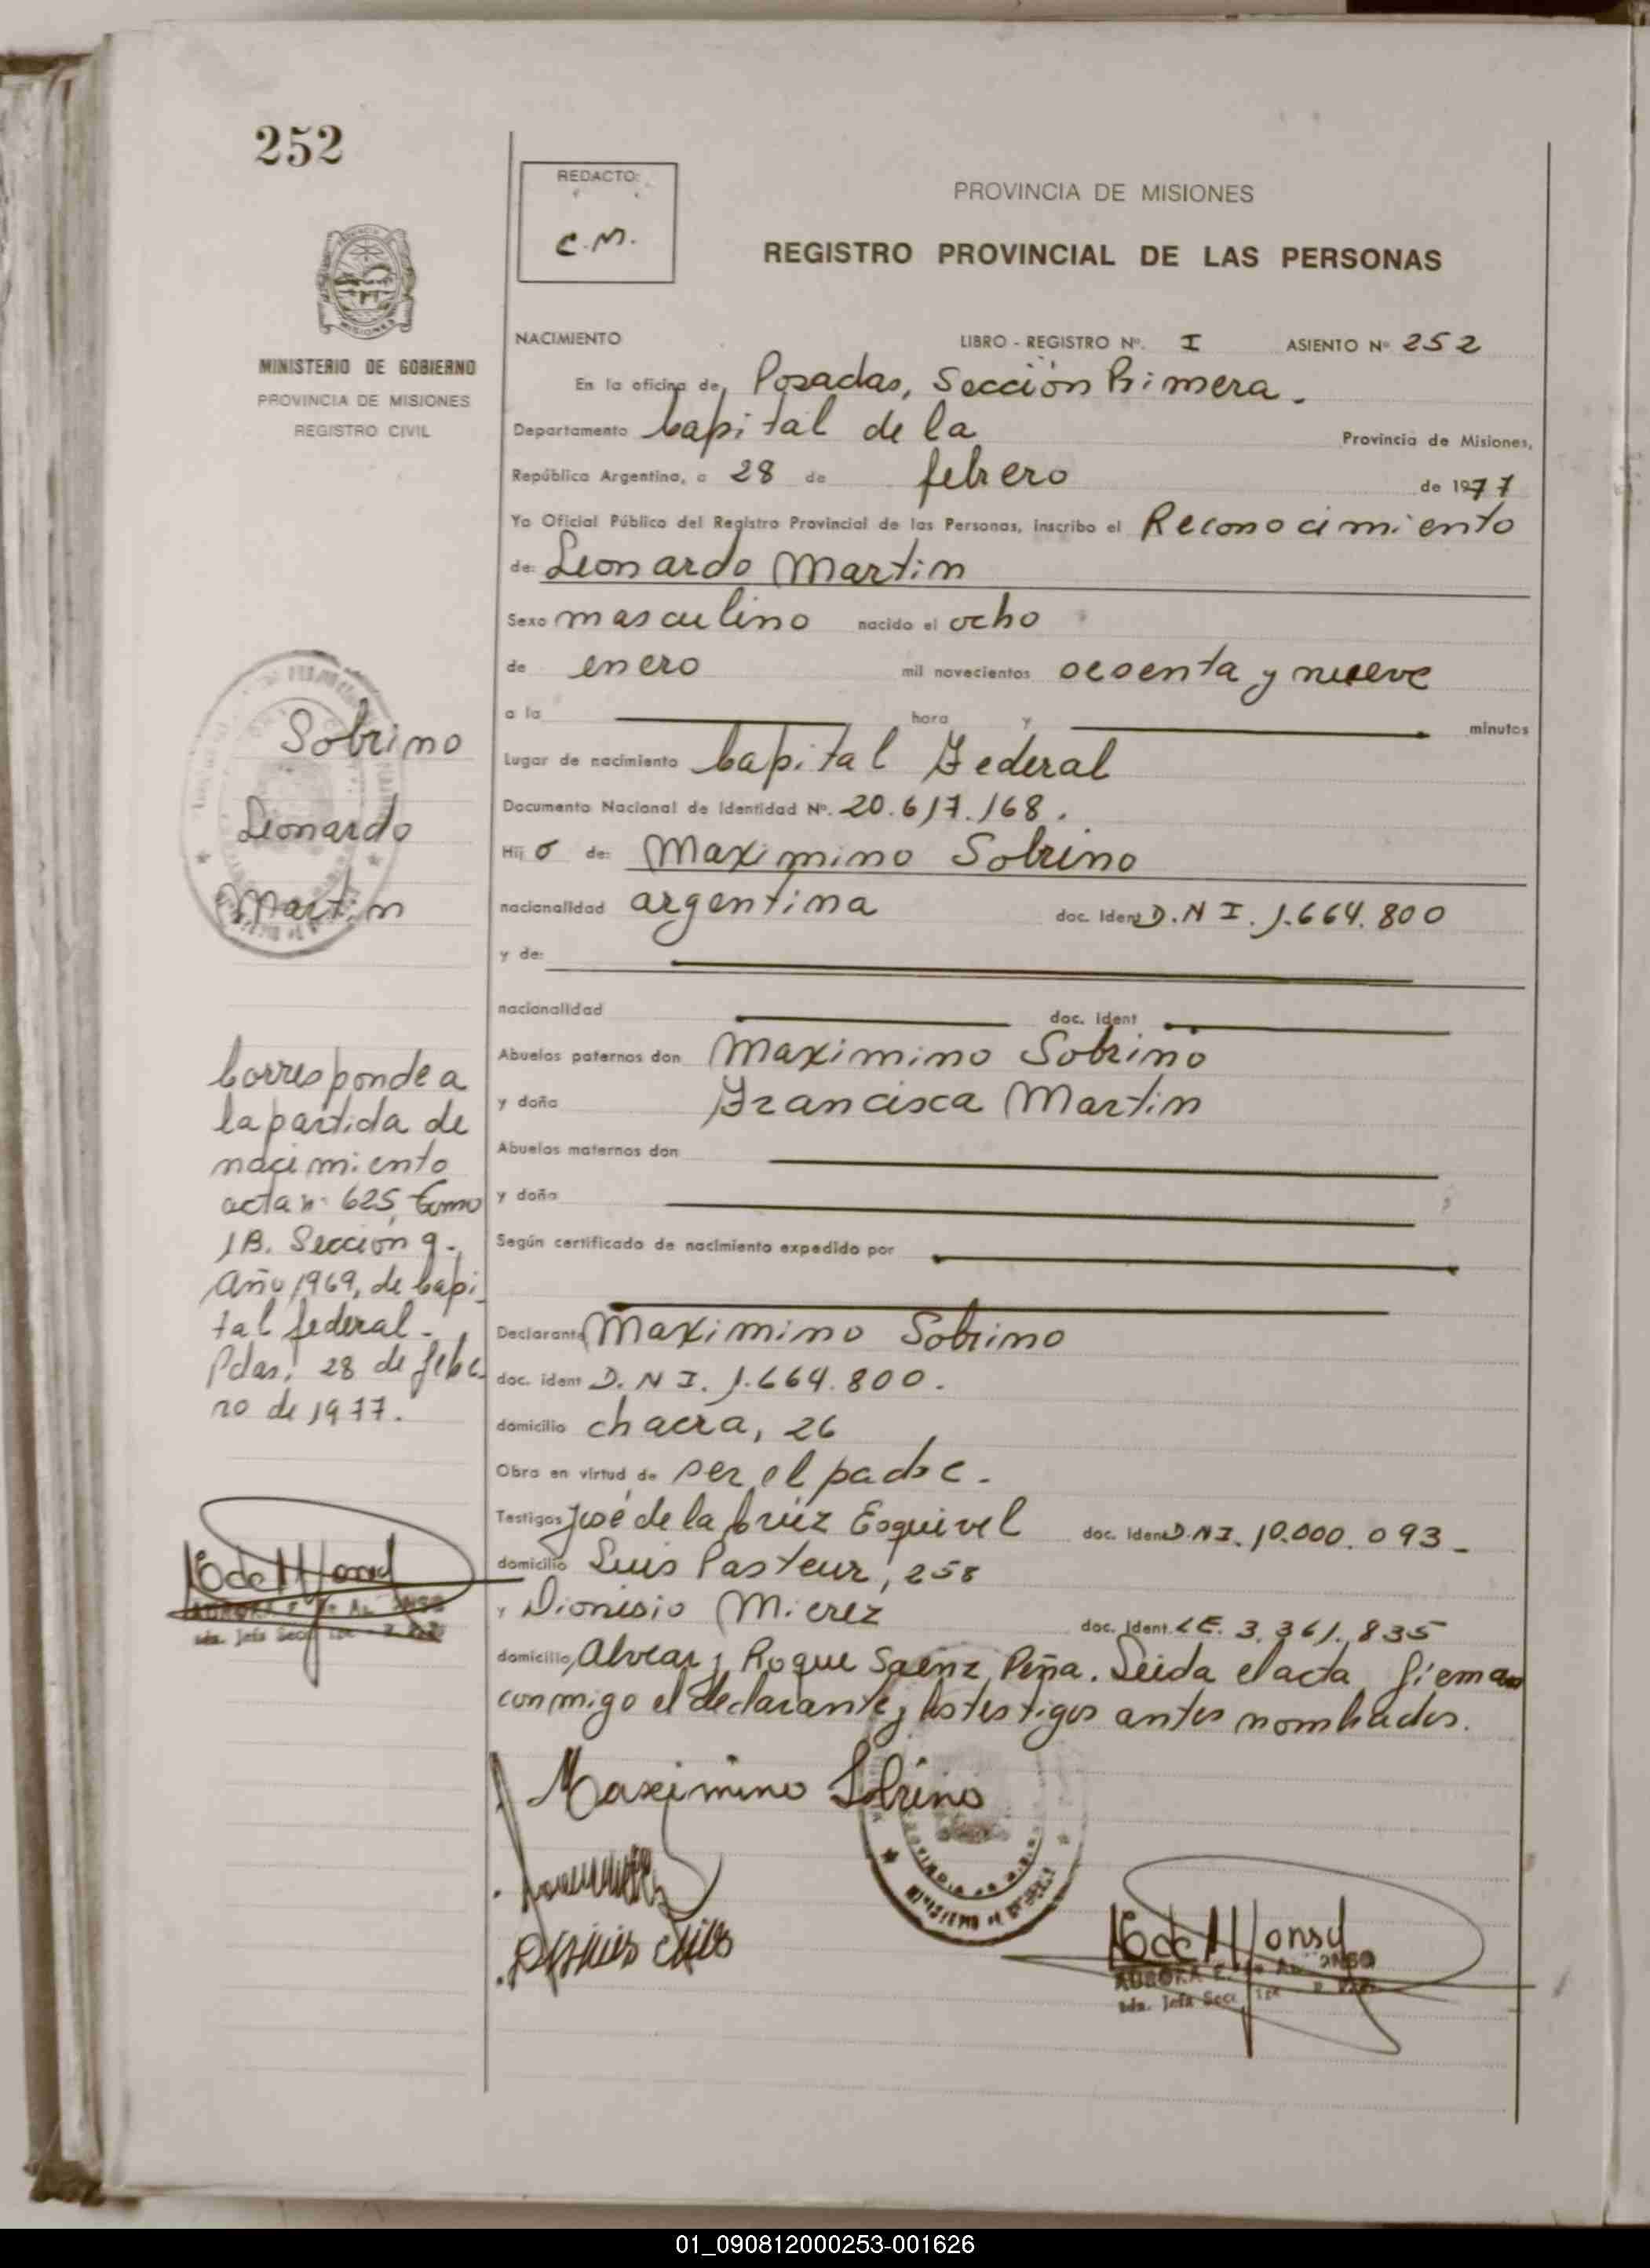 252
REDACTO:
C.M.
PROVINCIA DE MISIONES
REGISTRO PROVINCIAL DE LAS PERSONAS
MINISTERIO DE GOBIERNO
PROVINCIA DE MISIONES
REGISTRO CIVIL
NACIMIENTO LIBRO - REGISTRO Nº. I ASIENTO Nº 252
En la oficina de Posadas, Sección Primera.
Departamento Capital de la Provincia de Misiones,
República Argentina, a 28 de febrero de 1977
Yo Oficial Público del Registro Provincial de las Personas, inscribo el Reconocimiento
de: Leonardo Martin
Sexo masculino nacido el ocho
de enero mil novecientos and y nueve
a la hora y minutos
Lugar de nacimiento Capital Federal
Documento Nacional de Identidad Nº. 20.617.168.
Hij o de: Maximino Sobrino
nacionalidad argentina doc. Ident D.N I. 1.664.800
y de:
nacionalidad doc. ident
Abuelos paternos don Maximino Sobrino
y doña Francisca Martin
Abuelos maternos don
y doña
Según certificado de nacimiento expedido por
Declarante Maximino Sobrino
doc. ident D. N I. 1.664.800.
domicilio chacra, 26
Obra en virtud de ser el padre.
Testigos José de la Cruz Esquivel doc. Ident D.NI. 10.000.093_
domicilio Luis Pasteur, 258
y Dionisio Mierez doc. Ident. LE. 3.361.835
domicilio Alvear y Roque Saenz Peña. Leida el acta firman
conmigo el declarante y los testigos antes nombrados.
Maximino Sobrino
Sobrino
Leonardo
Martin
Corresponde a
la partida de
nacimiento
acta nº 625, tomo
1B. Sección 9-,
Año 1969, de Capi_
tal federal-.
Pdas, 28 de febre_
ro de 1977.
AURORA
01_090812000253-001626